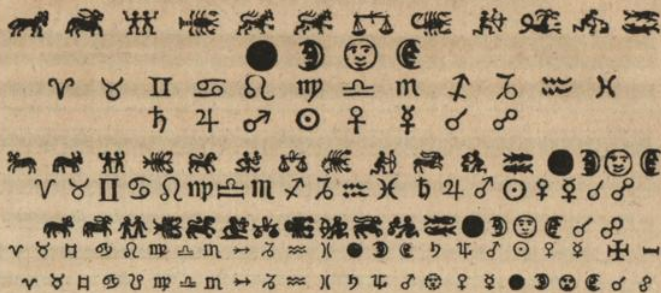 ♈ ♉ ♊ ♋ ♌ ♍ ♎ ♏ ♐ ♑ ♒ ♓
♄ ♃ ♂ ☉ ♀ ☿ ☌ ☍
♈ ♉ ♊ ♋ ♌ ♍ ♎ ♏ ♐ ♑ ♒ ♓ ♄ ♃ ♂ ☉ ♀ ☿ ☌ ☍
☌ ☍
♈ ♉ ♊ ♋ ♌ ♍ ♎ ♏ ♐ ♑ ♒ ♓ ● ☽ ☾ ♄ ♃ ♂ ☉ ♀ ☿ ✠
♈ ♉ ♊ ♋ ♌ ♍ ♎ ♏ ♐ ♑ ♒ ♓ ♄ ♃ ♂ ☉ ♀ ☿ ● ☽ ☾ ☌ ☍